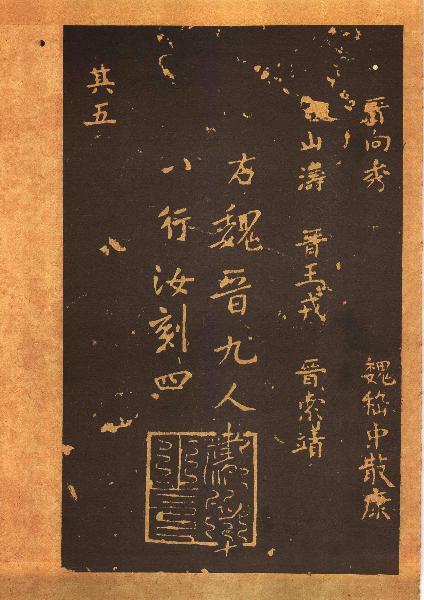 晋向秀 魏嵇中散康
晋山濤 晋王戎 晋索靖
右魏晋九人書
八行汝刻四
其五